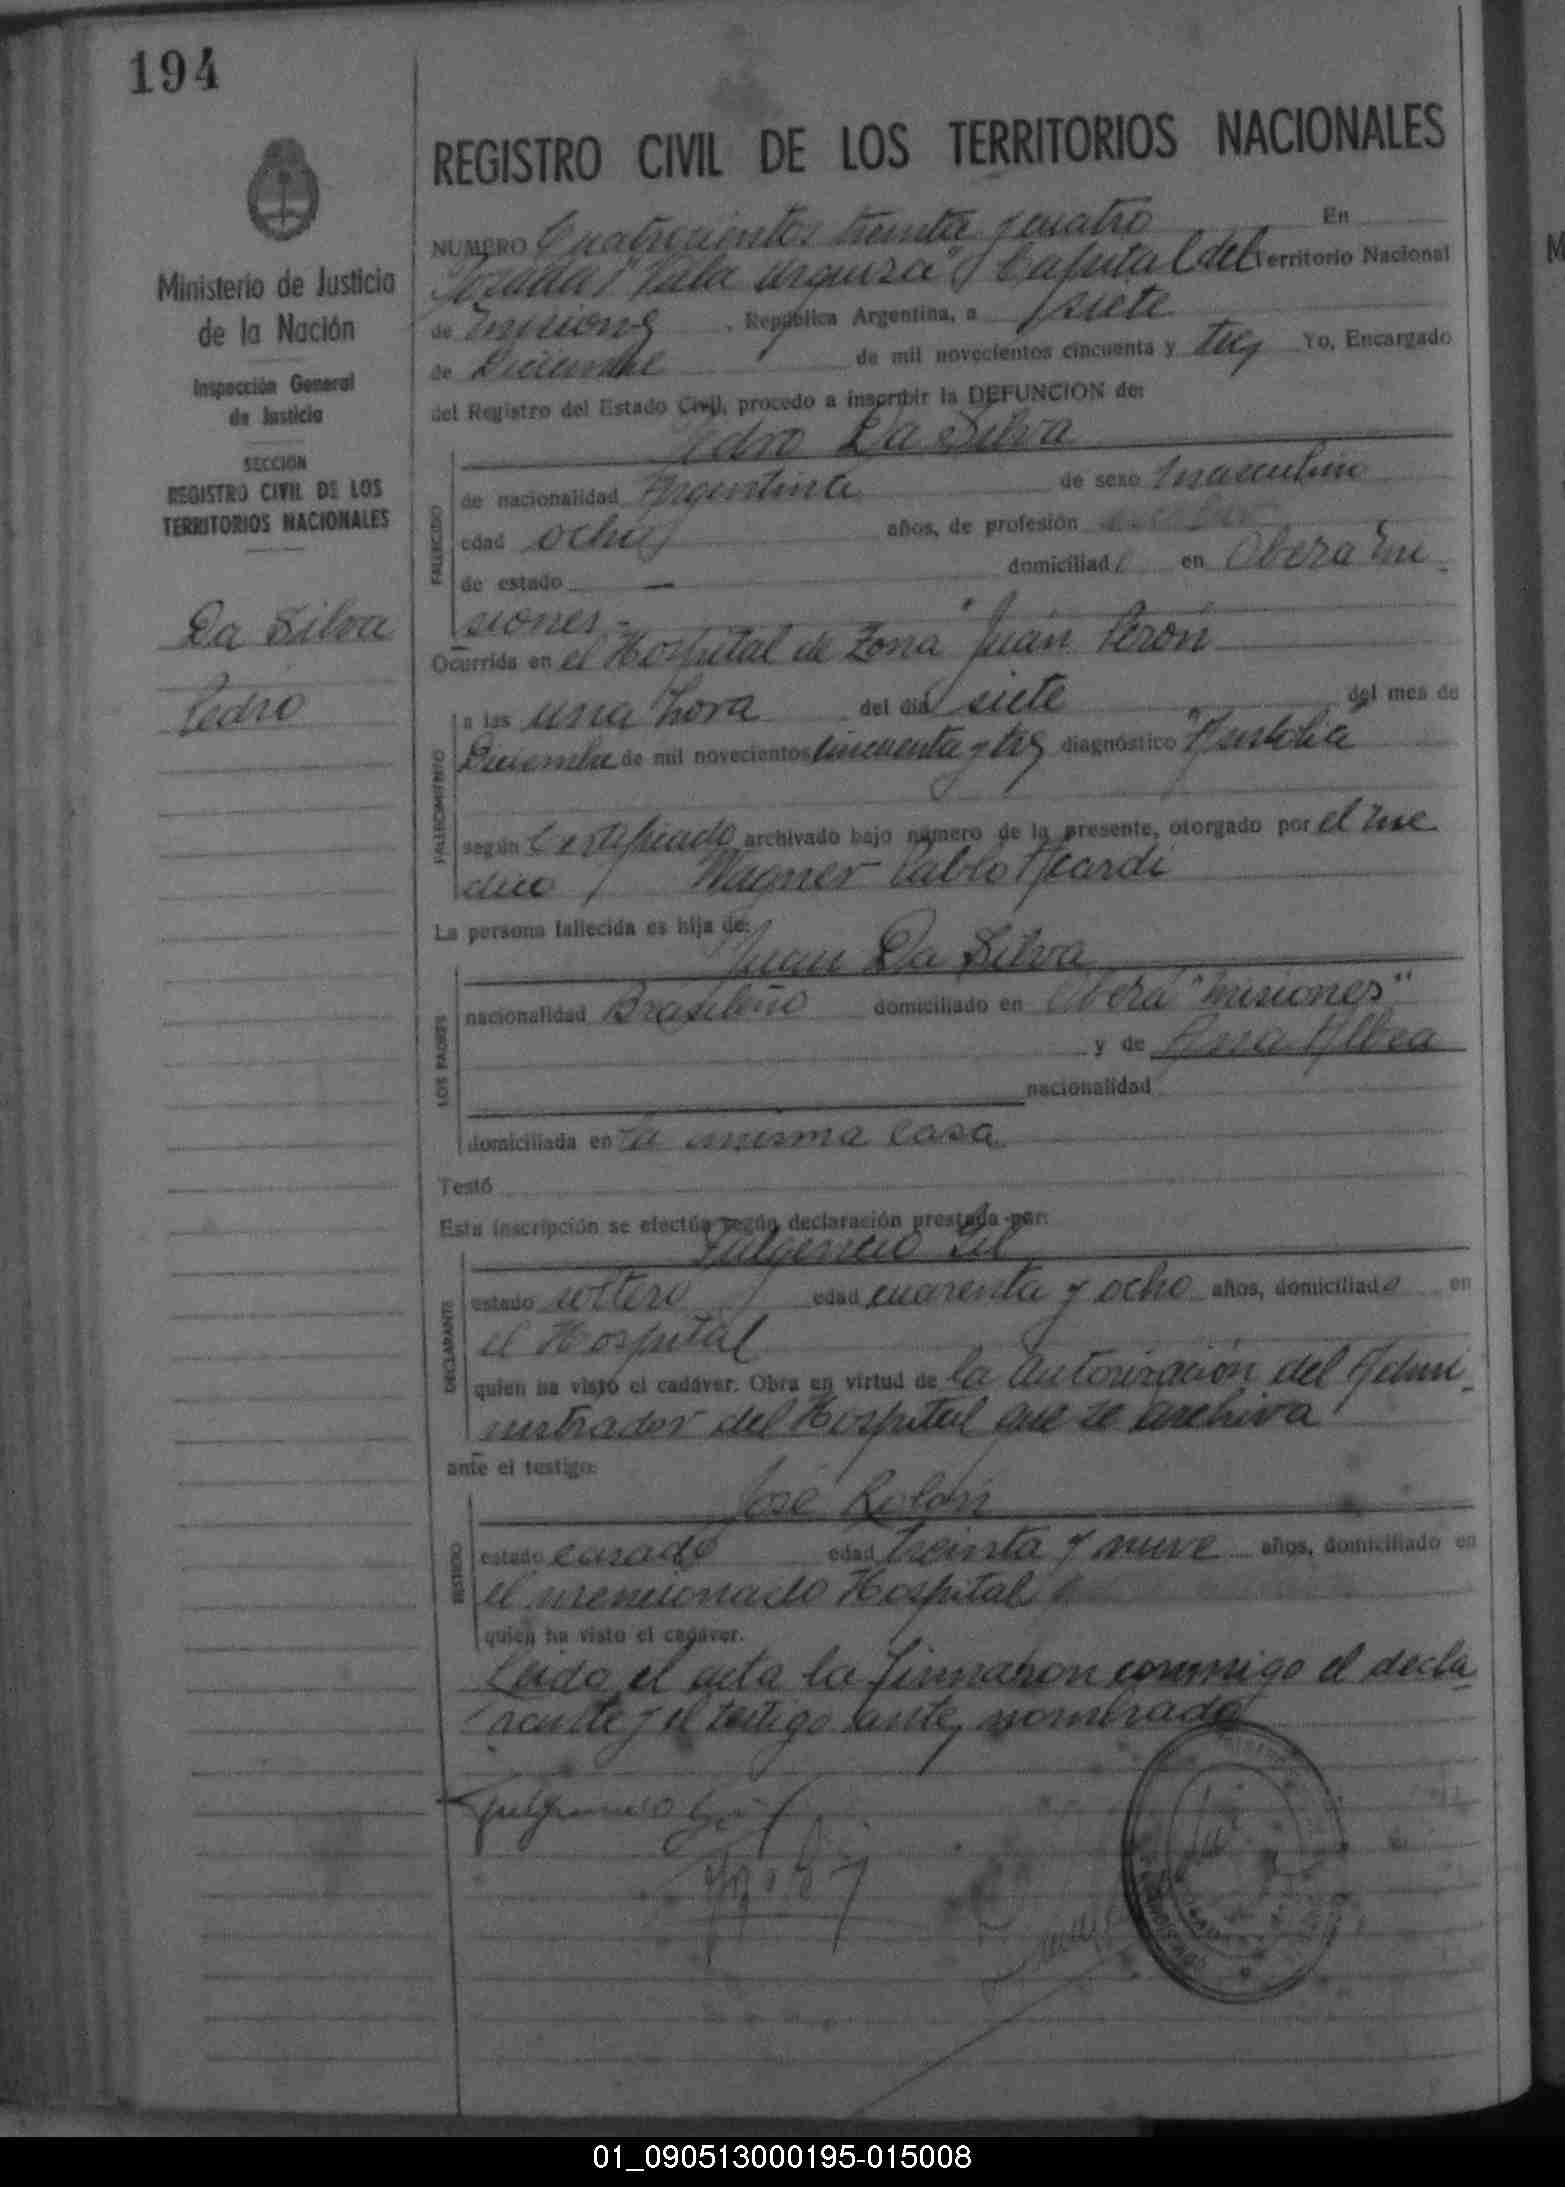 194
REGISTRO CIVIL DE LOS TERRITORIOS NACIONALES
Ministerio de Justicia
de la Nación
Inspección General
de Justicia
SECCION
REGISTRO CIVIL DE LOS
TERRITORIOS NACIONALES
Da Silva
Pedro
NUMERO Cuatrocientos treinta y cuatro En
Posadas Capital del Territorio Nacional
de Misiones, República Argentina, a siete
de Diciembre de mil novecientos cincuenta y tres Yo, Encargado
del Registro del Estado Civil, procedo a inscribir la DEFUNCION de:
Pedro Da Silva
FALLECIDO
de nacionalidad Argentina de sexo masculino
edad ocho años, de profesión
de estado — domiciliado en Oberá Mi-
siones.-
Ocurrida en el Hospital de Zona "Juan Perón
FALLECIMIENTO
a las una hora del día siete del mes de
Diciembre de mil novecientos cincuenta y tres diagnóstico
según Certificado archivado bajo número de la presente, otorgado por el me
dico Wagner Pablo Acardi
La persona fallecida es hija de:
Juan Da Silva
LOS PADRES
nacionalidad Brasileño domiciliado en Oberá "Misiones"
y de Ana Albea
nacionalidad
domiciliada en la misma casa
Testó
Esta inscripción se efectúa según declaración prestada por:
Fulgencio Gil
DECLARANTE
estado soltero edad cuarenta y ocho años, domiciliado en
el Hospital
quien ha visto el cadáver. Obra en virtud de la autorización del Admi-
nistrador del Hospital que se archiva
ante el testigo:
José Rolón
TESTIGO
estado casado edad treinta y nueve años, domiciliado en
el mencionado Hospital
quien ha visto el cadáver.
Leida el acta la firmaron conmigo el decla-
rante y el testigo antes nombrado
Fulgencio Gil
01_090513000195-015008